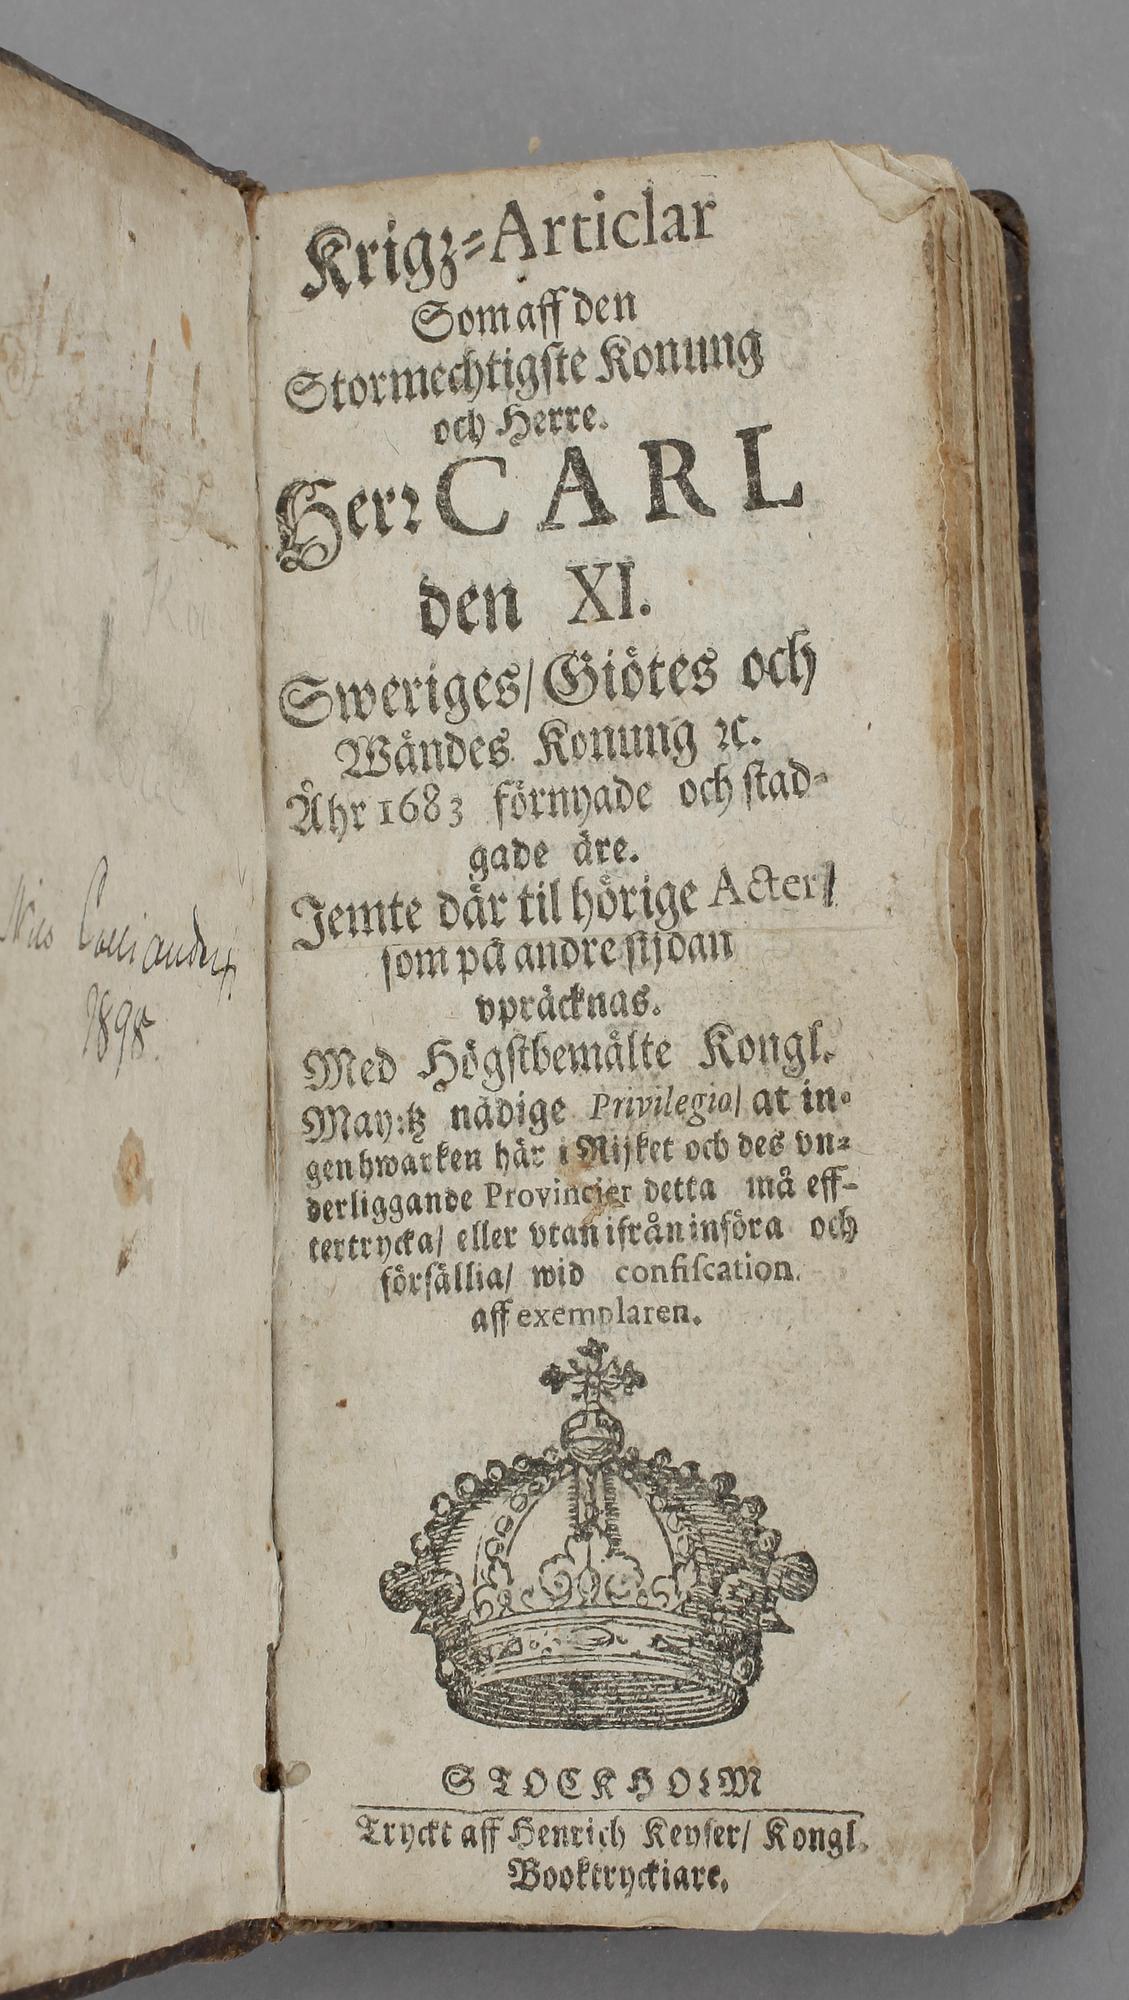 Krigz-Articlar
Som aff den
Stormechtigste Konung
och Herre.
Herr CARL
den XI.
Sweriges/ Giötes och
Wändes Konung ꝛc.
Åhr 1683 förnyade och stad-
gade äre.
Jemte där til hörige Acter/
som på andre sijdan
vpräcknas.
Med Högstbemälte Kongl.
May:tz nådige Privilegio/ at in-
gen hwarken här i Rijket och des vn-
derliggande Provincier detta må eff-
tertrycka/ eller vtan ifrån införa och
försällia/ wid confiscation.
aff exemplaren.
STOCKHOLM
Tryckt aff Henrich Keyser/ Kongl.
Booktryckiare.
Nils
1898.